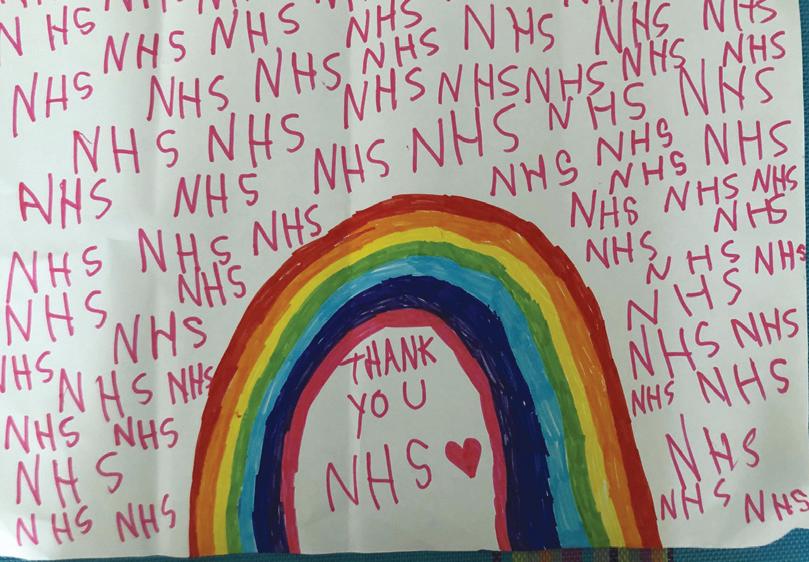 NHS NHS NHS NHS NHS NHS NHS
NHS NHS NHS
NHS NHS NHS NHS NHS NHS NHS NHS
NHS NHS NHS NHS NHS NHS
NHS NHS
NHS NHS NHS NHS NHS
NHS
NHS NHS NHS NHS NHS NHS
NHS
NHS NHS
NHS NHS NHS
NHS NHS NHS NHS NHS
THANK
YOU
NHS ♥
NHS NHS NHS
NHS
NHS NHS NHS NHS